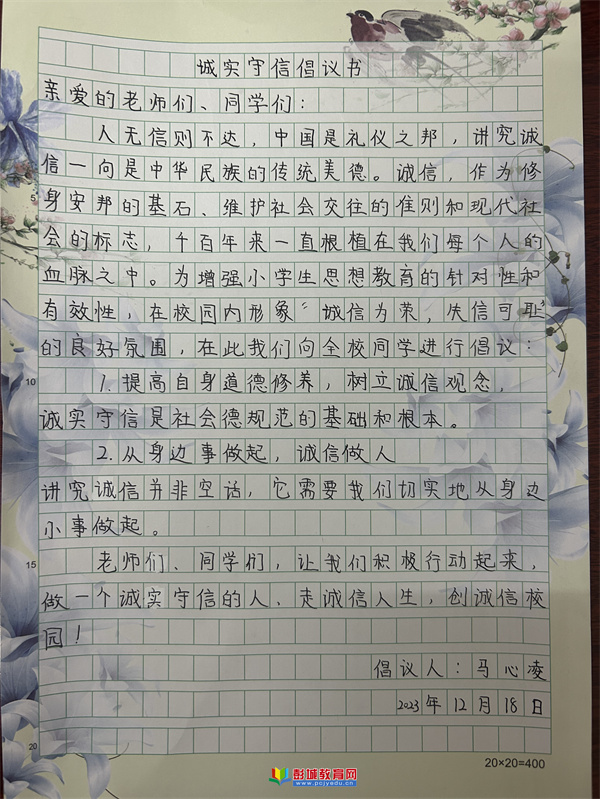 诚实守信倡议书
亲爱的老师们、同学们：
人无信则不达，中国是礼仪之邦，讲究诚
信一向是中华民族的传统美德。诚信，作为修
身安邦的基石、维护社会交往的准则和现代社
会的标志，千百年来一直根植在我们每个人的
血脉之中。为增强小学生思想教育的针对性和
有效性，在校园内形象“诚信为荣，失信可耻”
的良好氛围，在此我们向全校同学进行倡议：
1.提高自身道德修养，树立诚信观念，
诚实守信是社会德规范的基础和根本。
2.从身边事做起，诚信做人
讲究诚信并非空话，它需要我们切实地从身边
小事做起。
老师们、同学们，让我们积极行动起来，
做一个诚实守信的人、走诚信人生，创诚信校
园！
倡议人：马心凌
2023年12月18日
5
10
15
20
20×20=400
彭城教育网
www.pcjyedu.cn